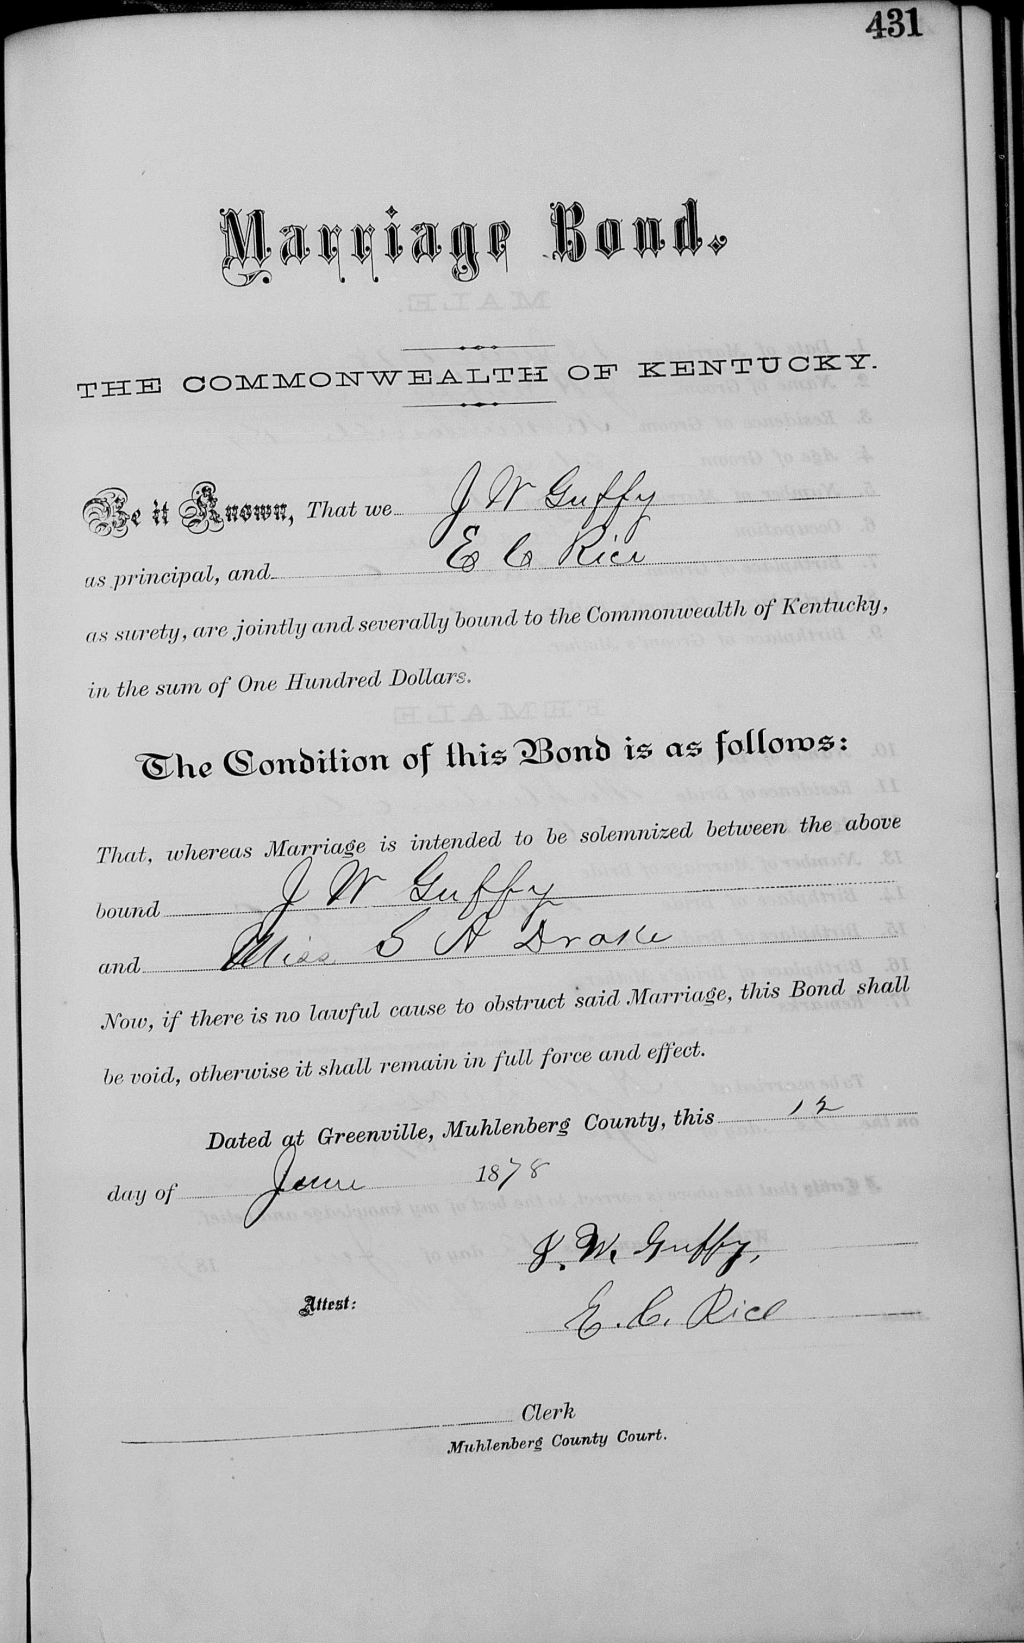 431
Marriage Bond.
THE COMMONWEALTH OF KENTUCKY.
Be it Known, That we J W Guffy
as principal, and E C Rice
as surety, are jointly and severally bound to the Commonwealth of Kentucky,
in the sum of One Hundred Dollars.
The Condition of this Bond is as follows:
That, whereas Marriage is intended to be solemnized between the above
bound J W Guffy
and Miss S A Drake
Now, if there is no lawful cause to obstruct said Marriage, this Bond shall
be void, otherwise it shall remain in full force and effect.
Dated at Greenville, Muhlenberg County, this 12
day of June 1878
J. W. Guffy,
Attest:
E. C. Rice
Clerk
Muhlenberg County Court.